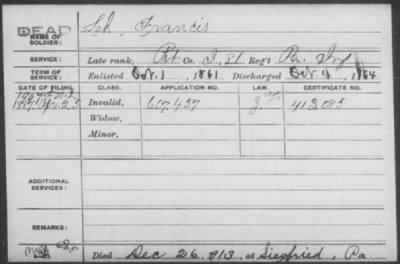 DEAD
NAME OF SOLDIER: Leh, Francis
SERVICE: Late rank, Pvt Co. I, 81 Reg't Pa. Inf
TERM OF SERVICE: Enlisted Oct. 1, 1861 Discharged Oct. 4, 1864
DATE OF FILING. CLASS. APPLICATION NO. LAW. CERTIFICATE NO.
1887, Apr. 25 Invalid, 607,437 J 413,085
Widow,
Minor,
ADDITIONAL SERVICES:
REMARKS:
Died Dec 26, 913, at Siegfried, Pa.